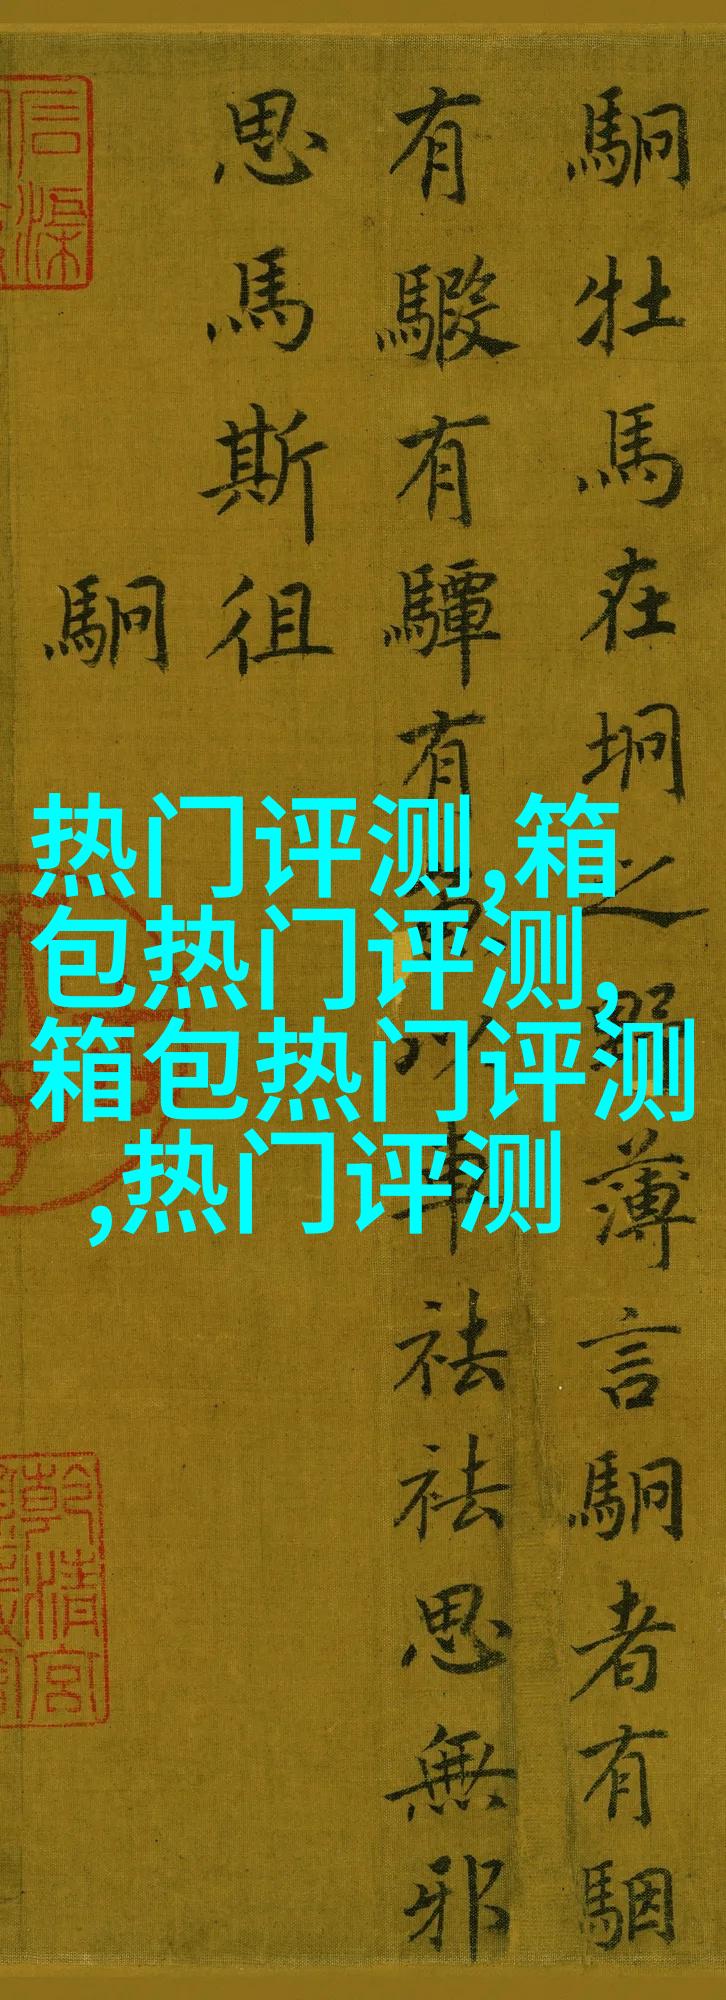 駉牡馬在坰之野薄言駉者有駰
有騢有驔有以車祛祛思無邪
思馬斯徂
駉
热门评测,箱
包热门评测,
箱包热门评测
,热门评测
乾清宮